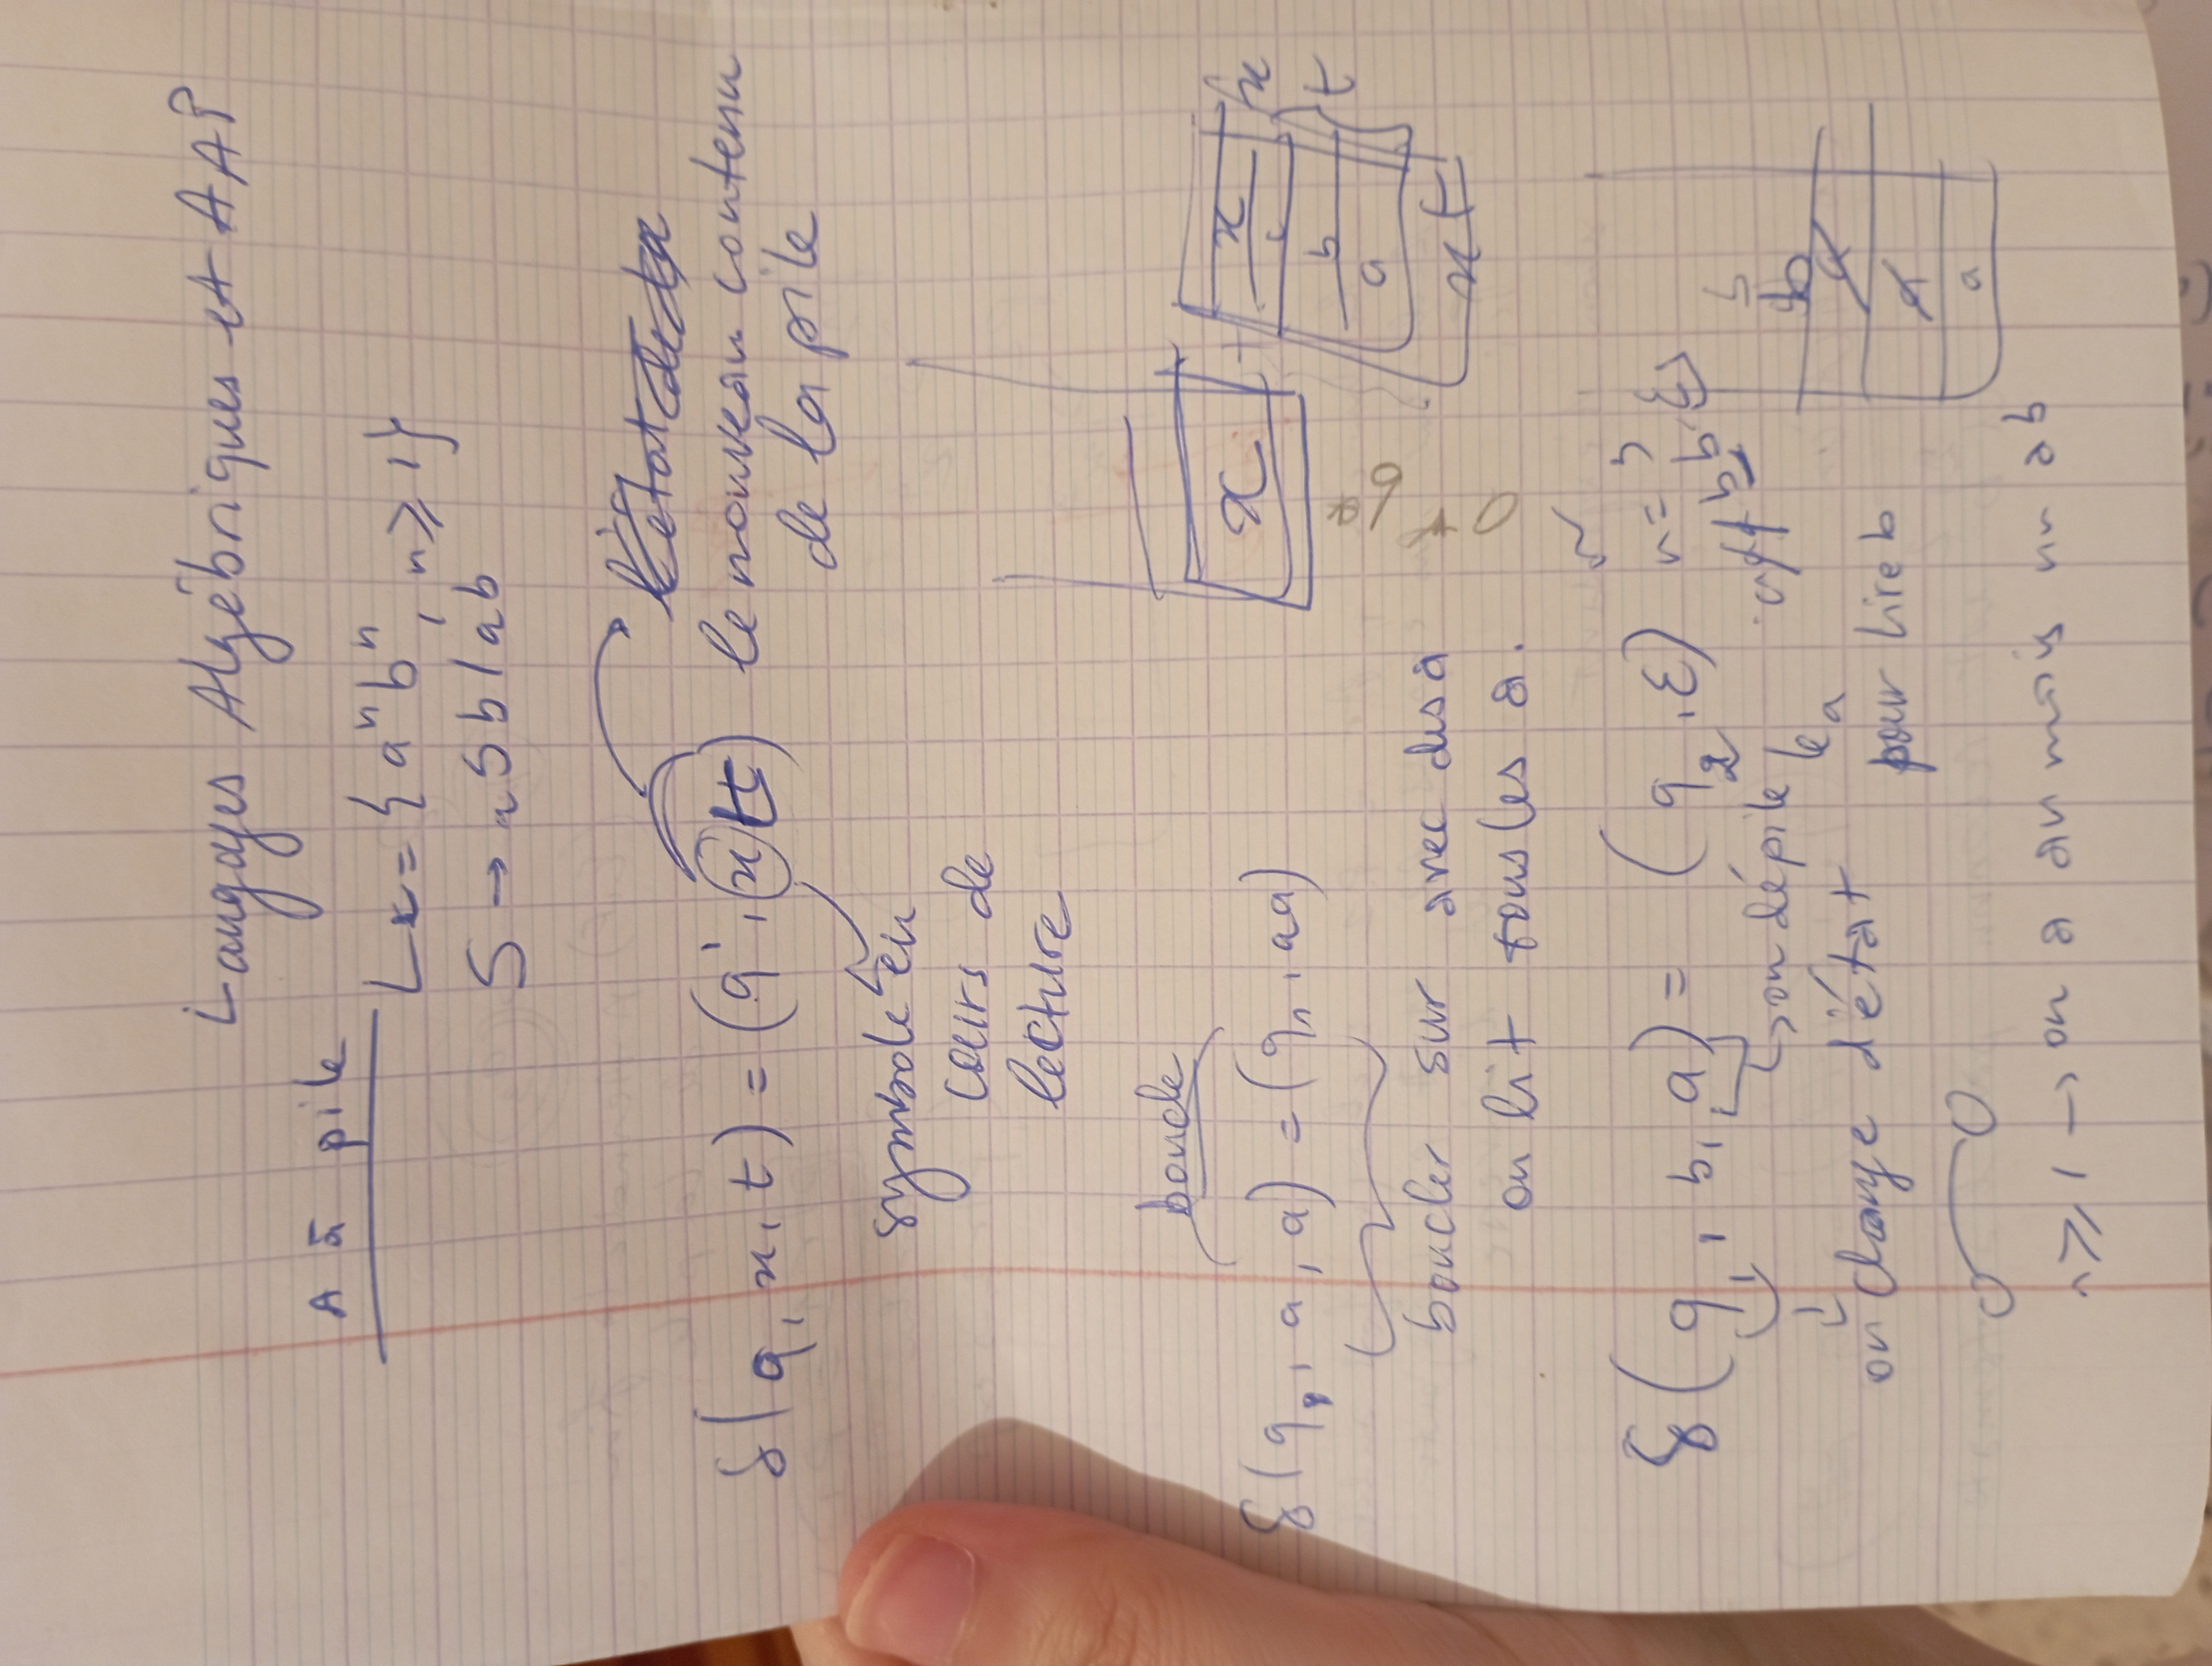 Langages Algébriques et AAP
A à pile
L = { aⁿ bⁿ, n ≥ 1}
S → aSb | ab
δ(q, x, t) = (q', xt)
le nouveau contenu
de la pile
symbole en
cours de
lecture
boucle
δ(q₁, a, a) = (q₁, aa)
x
+
x
c
b
a
x
t
xt
boucler sur avec des a
on lit tous les a.
δ(q₁, b, a) = (q₂, ε)
n = 3
→ on dépile le a
pour lire b
on change d'état
b
a
a
a
n ≥ 1 → on a au moins un ab